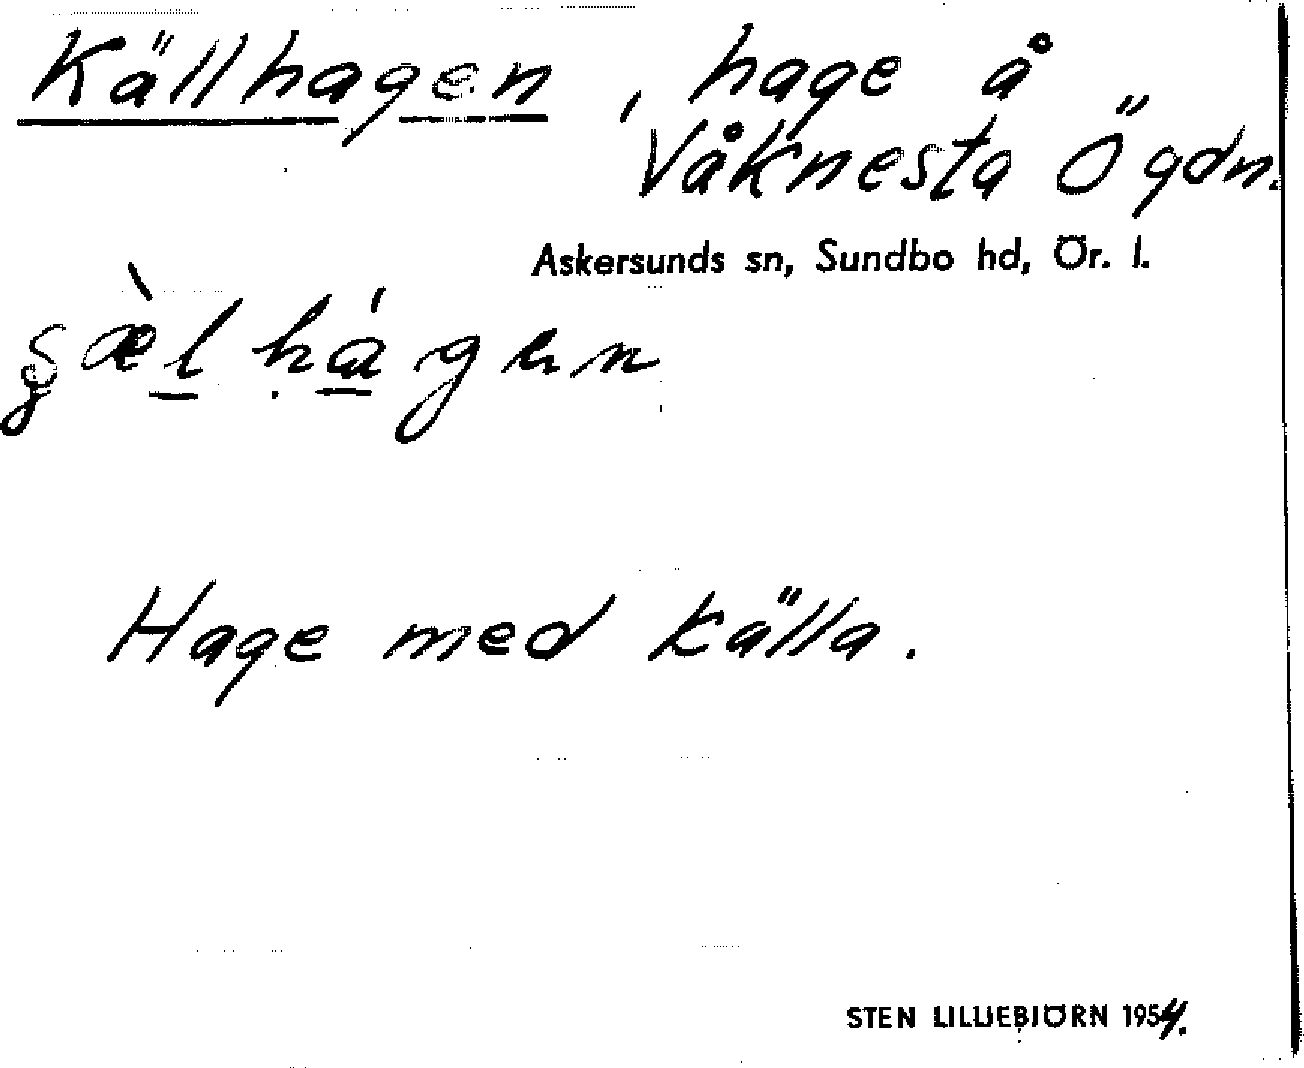 Källhagen, hage å
Våknesta Ö gdn.
Askersunds sn, Sundbo hd, Ör. l.
Hage med källa.
STEN LILLIEBJÖRN 1954.